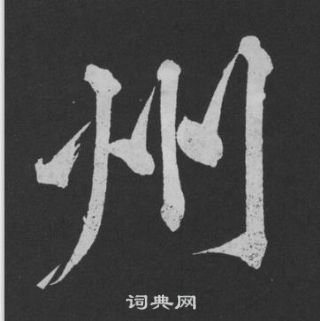 州
词典网